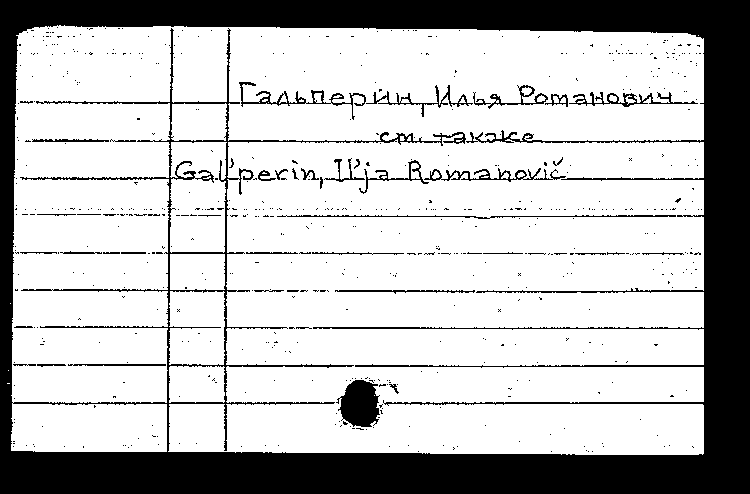 Гальперин, Илья Романович
см. также
Gal'perin, Il'ja Romanovič